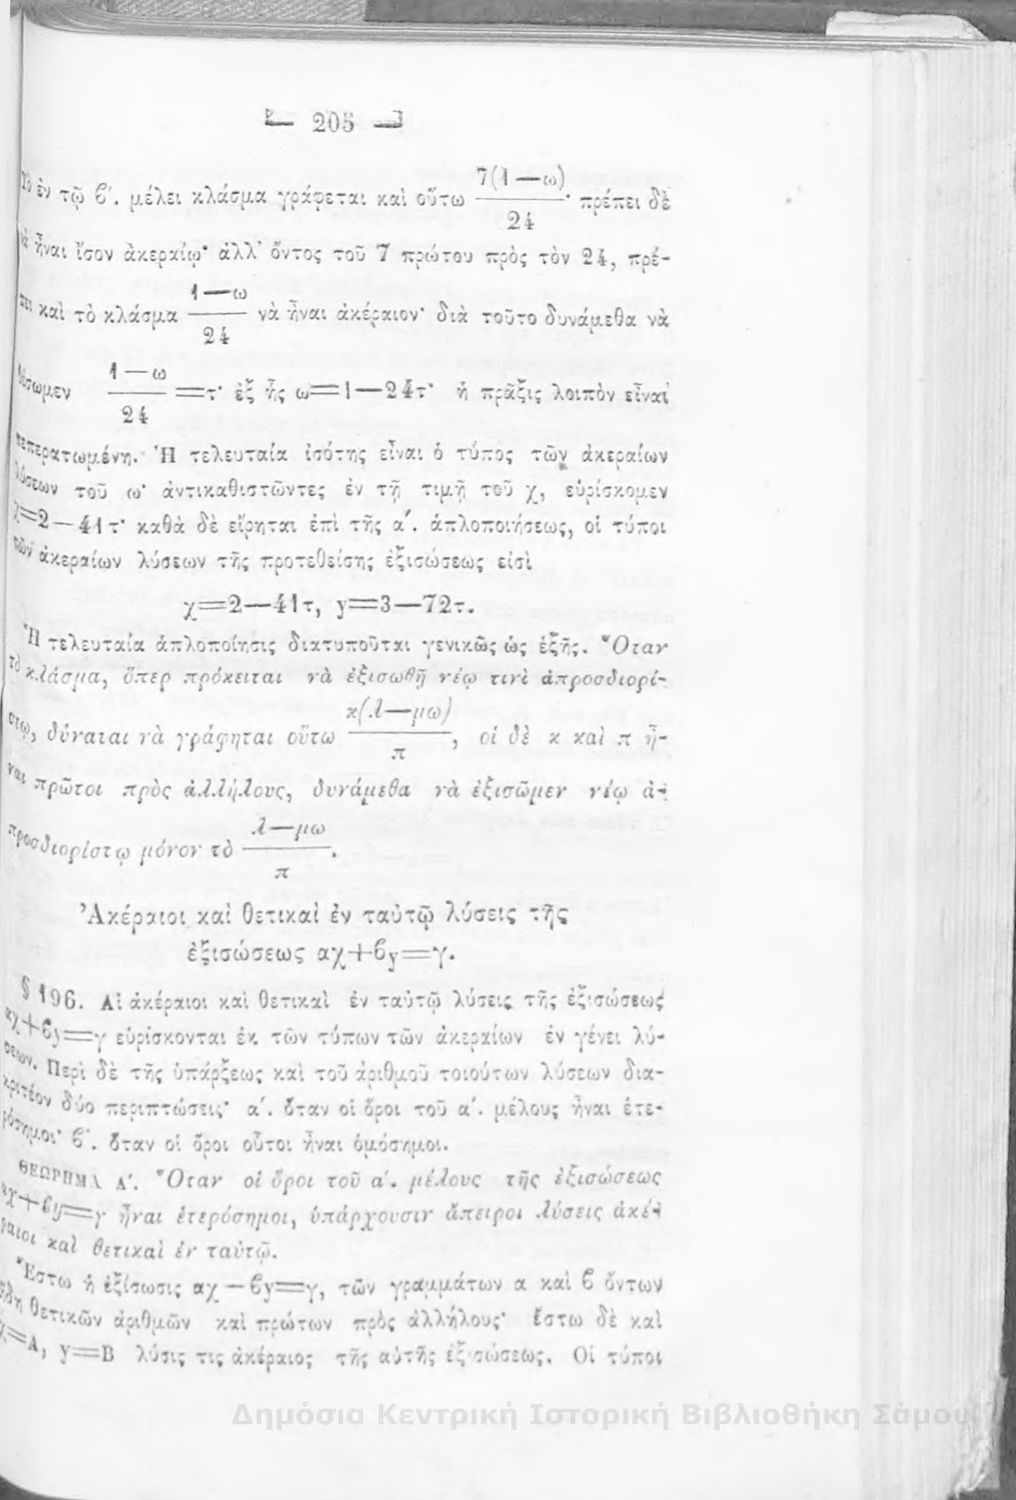 205
Τὸ ἐν τῷ ϐ′. μέλει κλάσμα γράφεται καὶ οὕτω 7(1—ω)/24· πρέπει δὲ
νὰ ἦναι ἴσον ἀκεραίῳ· ἀλλ᾿ ὄντος τοῦ 7 πρώτου πρὸς τὸν 24, πρέ-
πει καὶ τὸ κλάσμα 1—ω/24 νὰ ἦναι ἀκέραιον· διὰ τοῦτο δυνάμεθα νὰ
θέσωμεν 1—ω/24=τ· ἐξ ἧς ω=1—24τ· ἡ πρᾶξις λοιπὸν εἶναι
πεπερατωμένη. Ἡ τελευταία ἰσότης εἶναι ὁ τύπος τῶν ἀκεραίων
λύσεων τοῦ ω· ἀντικαθιστῶντες ἐν τῇ τιμῇ τοῦ χ, εὑρίσκομεν
χ=2—41τ· καθὰ δὲ εἴρηται ἐπὶ τῆς α′. ἁπλοποιήσεως, οἱ τύποι
τῶν ἀκεραίων λύσεων τῆς προτεθείσης ἐξισώσεως εἰσὶ
χ=2—41τ, y=3—72τ.
Ἡ τελευταία ἁπλοποίησις διατυποῦται γενικῶς ὡς ἑξῆς. Ὅταν
τὸ κλάσμα, ὅπερ πρόκειται νὰ ἐξισωθῇ νέῳ τινὶ ἀπροσδιορί-
στῳ, δύναται νὰ γράφηται οὕτω κ(λ—μω)/π, οἱ δὲ κ καὶ π ἦ-
ναι πρῶτοι πρὸς ἀλλήλους, δυνάμεθα νὰ ἐξισῶμεν νέῳ ἀ-
προσδιορίστῳ μόνον τὸ λ—μω/π.
Ἀκέραιοι καὶ θετικαὶ ἐν ταὐτῷ λύσεις τῆς
ἐξισώσεως αχ+ϐy=γ.
§ 196. Αἱ ἀκέραιοι καὶ θετικαὶ ἐν ταὐτῷ λύσεις τῆς ἐξισώσεως
αχ+ϐy=γ εὑρίσκονται ἐκ τῶν τύπων τῶν ἀκεραίων ἐν γένει λύ-
σεων. Περὶ δὲ τῆς ὑπάρξεως καὶ τοῦ ἀριθμοῦ τοιούτων λύσεων δια-
κριτέον δύο περιπτώσεις· α′. ὅταν οἱ ὅροι τοῦ α′. μέλους ἦναι ἑτε-
ρόσημοι· ϐ′. ὅταν οἱ ὅροι οὗτοι ἦναι ὁμόσημοι.
ΘΕΩΡΗΜΑ Α′. Ὅταν οἱ ὅροι τοῦ α′. μέλους τῆς ἐξισώσεως
αχ+ϐy=γ ἦναι ἑτερόσημοι, ὑπάρχουσιν ἄπειροι λύσεις ἀκέ-
ραιοι καὶ θετικαὶ ἐν ταὐτῷ.
Ἔστω ἡ ἐξίσωσις αχ—ϐy=γ, τῶν γραμμάτων α καὶ ϐ ὄντων
ἤδη θετικῶν ἀριθμῶν καὶ πρώτων πρὸς ἀλλήλους· ἔστω δὲ καὶ
χ=Α, y=Β λύσις τις ἀκέραιος τῆς αὐτῆς ἐξισώσεως. Οἱ τύποι
Δημόσια Κεντρική Ιστορική Βιβλιοθήκη Σάμου